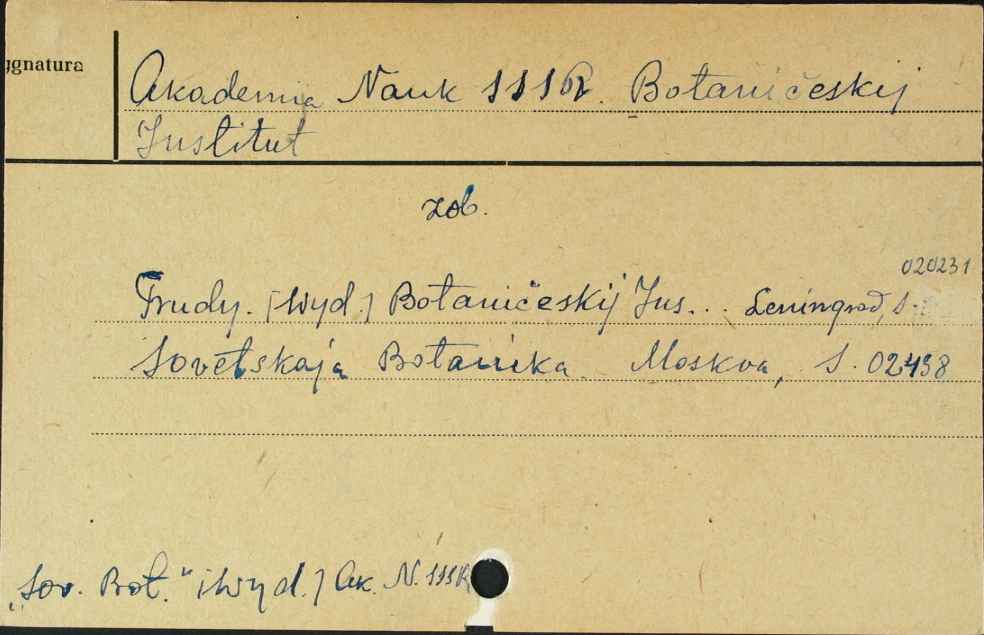 ygnatura
Akademia Nauk SSSR. Botaničeskij
Institut
zob.
020231
Trudy. [Wyd.] Botaničeskij Ins... Leningrad, S.
Sovetskaja Botanika. Moskva, S. 02438
"Sov. Bot." [Wyd.] Ak. N. SSSR